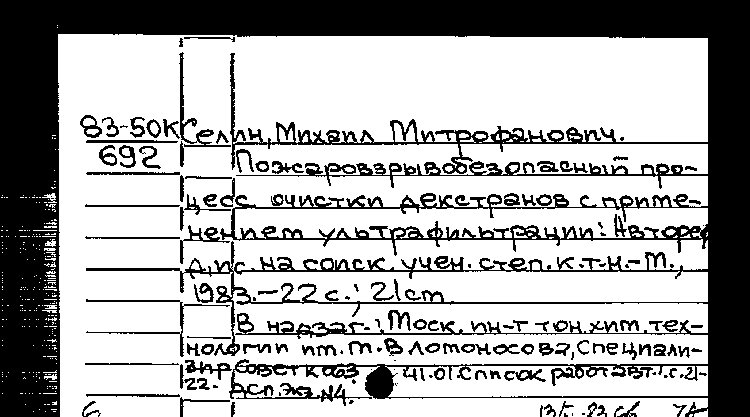 83-50К Селин, Михаил Митрофанович.
692 Пожаровзрывобезопасный про-
цесс очистки декстранов с приме-
нением ультрафильтрации: Автореф
дис. на соиск. учен. степ. к.т.н. - М.,
1983. - 22 с.; 21 cm.
В надзаг.: Моск. ин-т тон. хим. тех-
нологии им. М.В Ломоносова, Специали-
зир. совет К 063 41.01. Список работ авт.: с. 21-
22. Дсп. Экз. N4.